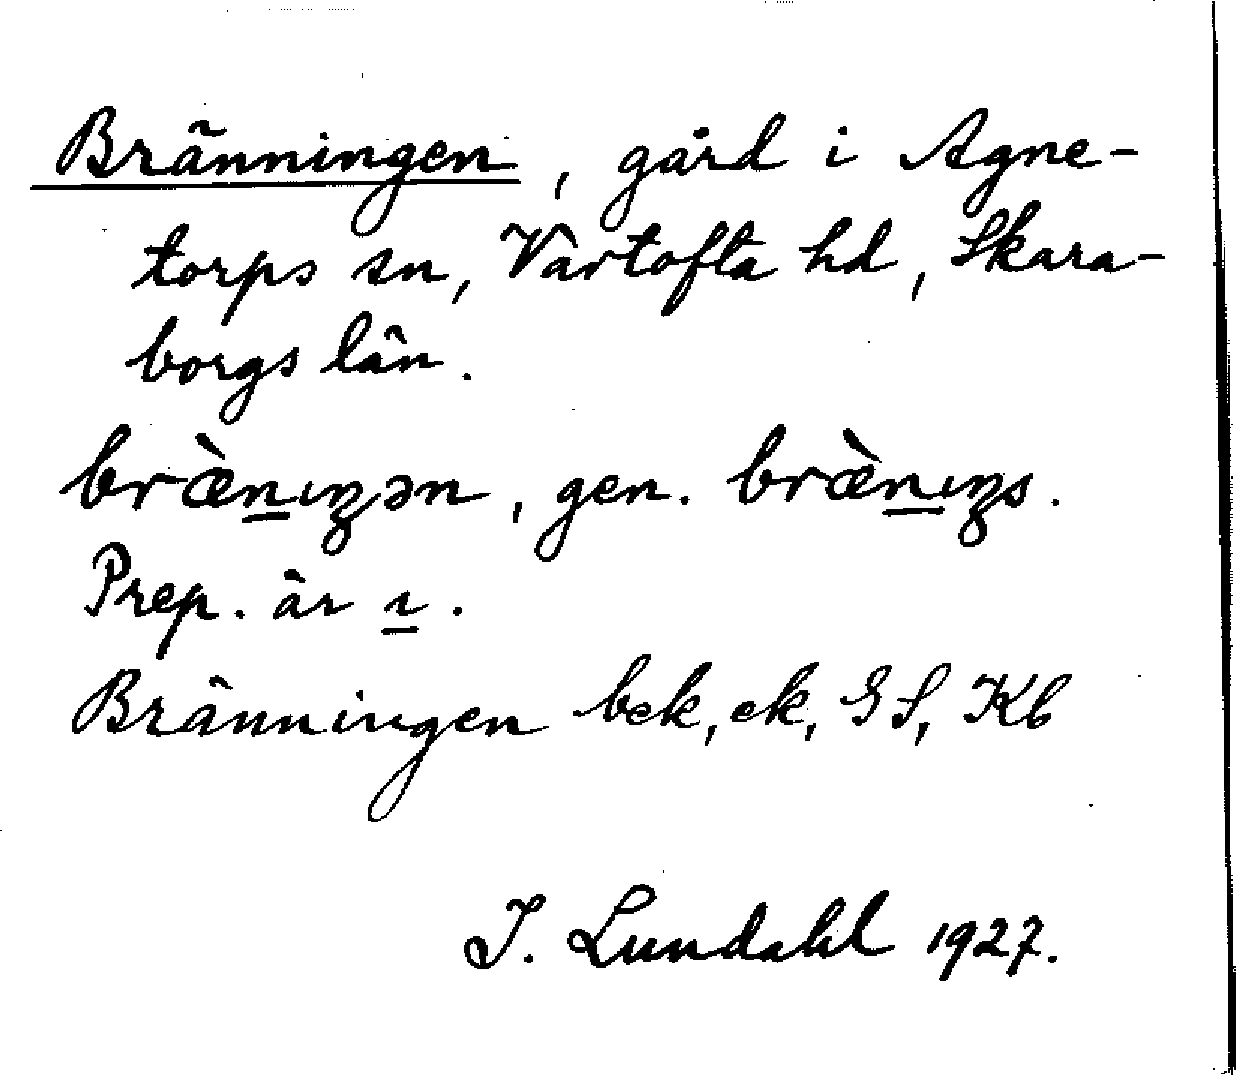 Bränningen, gård i Agne-
torps sn, Vartofta hd, Skara-
borgs län.
bræ̀nıŋən, gen. bræ̀nıŋs.
Prep. är ı.
Bränningen bek, ek, GS, Kb
I. Lundahl 1927.